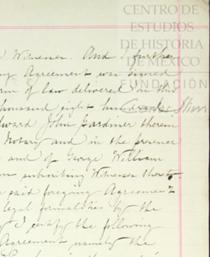 CENTRO DE
ESTUDIOS
DE HISTORIA
DE MÉXICO
FUNDACIÓN
Witnesses And I further
Agreement was signed
form of law delivered in the
thousand eight hundred
Edward John Gardiner therein
Notary and in the presence
and of George William
subscribing Witnesses thereto
said foregoing Agreement
legal formalities by the
I certify the following
Agreement namely the